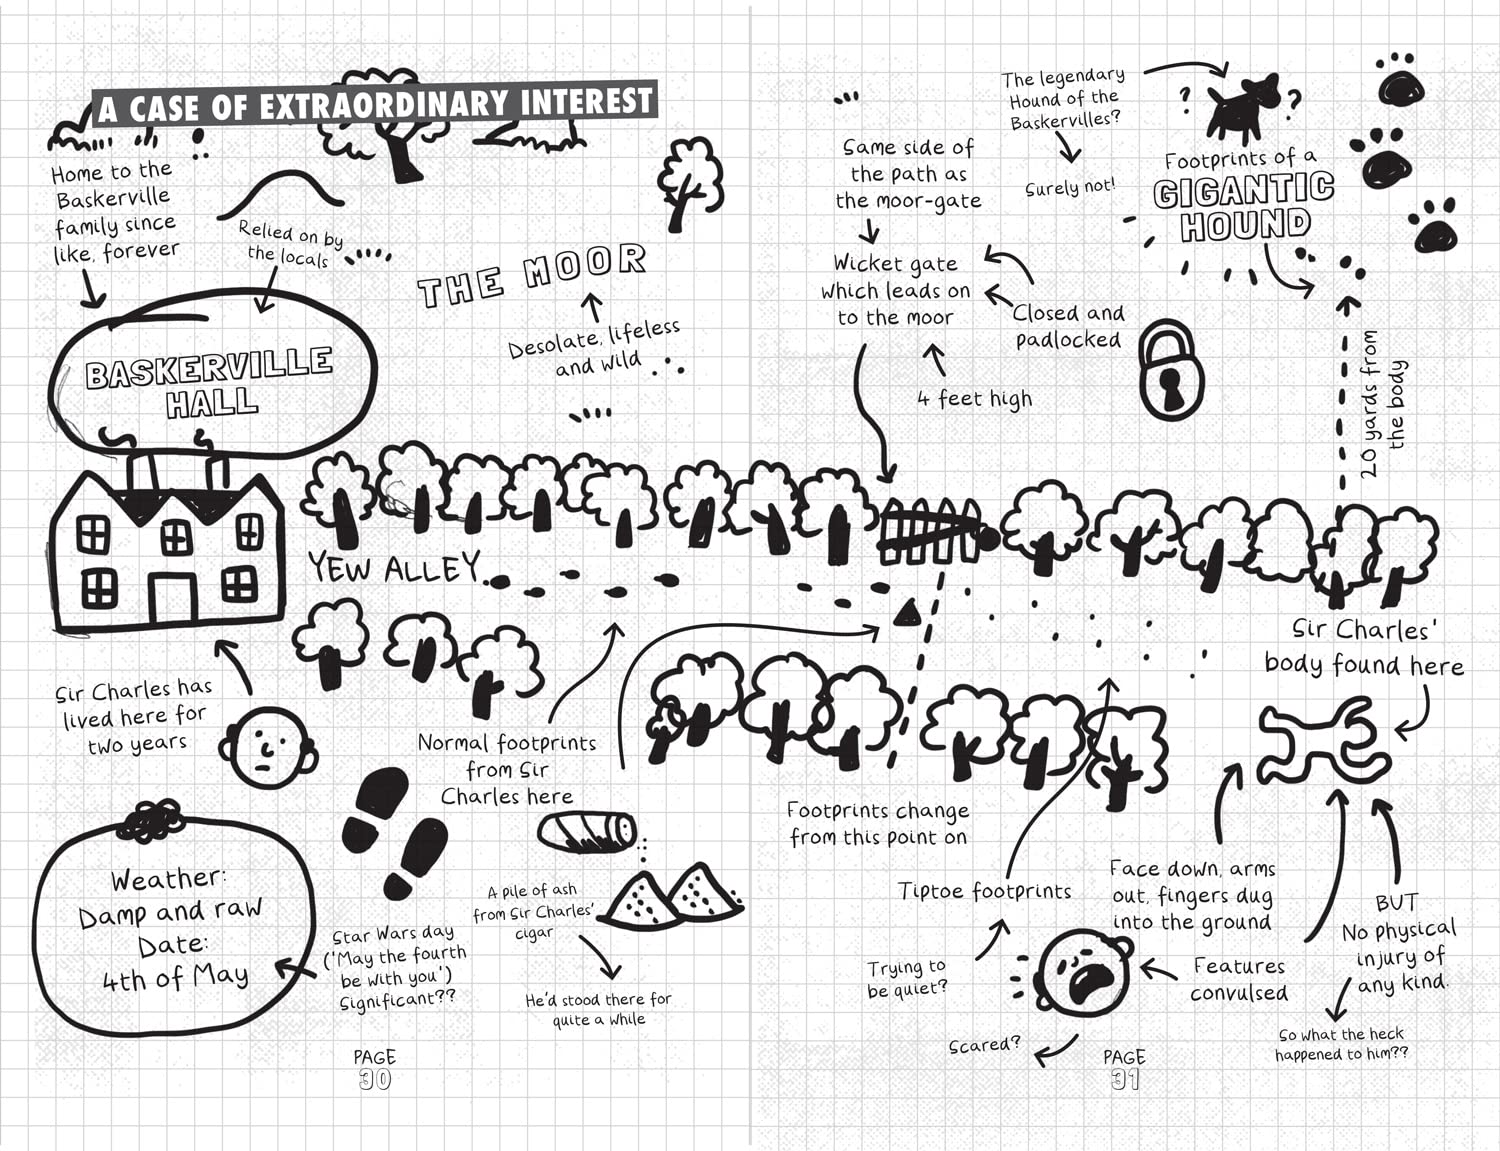 A CASE OF EXTRAORDINARY INTEREST
Home to the
Baskerville
family since
like, forever
Relied on by
the locals
THE MOOR
Desolate, lifeless
and wild
BASKERVILLE
HALL
YEW ALLEY
Sir Charles has
lived here for
two years
Normal footprints
from Sir
Charles here
Weather:
Damp and raw
Date:
4th of May
Star Wars day
('May the fourth
be with you')
Significant??
A pile of ash
from Sir Charles'
cigar
He'd stood there for
quite a while
PAGE
30
The legendary
Hound of the
Baskervilles?
Surely not!
? ?
Footprints of a
GIGANTIC
HOUND
Same side of
the path as
the moor-gate
Wicket gate
which leads on
to the moor
Closed and
padlocked
4 feet high
20 yards from
the body
Sir Charles'
body found here
Footprints change
from this point on
Tiptoe footprints
Trying to
be quiet?
Scared?
Face down, arms
out, fingers dug
into the ground
Features
convulsed
BUT
No physical
injury of
any kind.
So what the heck
happened to him??
PAGE
31